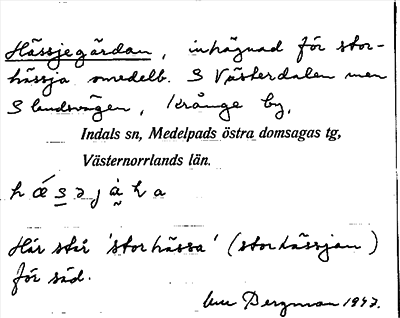 Hässjegärdan, inhägnad för stor-
hässja omedelb. S Västerdalen men
S landsvägen, Krånge by,
Indals sn, Medelpads östra domsagas tg,
Västernorrlands län.
Här står 'storhässa' (storhässjan)
för säd.
Bergman 1943.